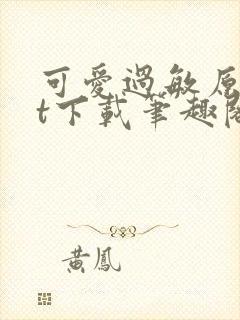 可愛過敏原
t下載筆趣閣
黃鳳